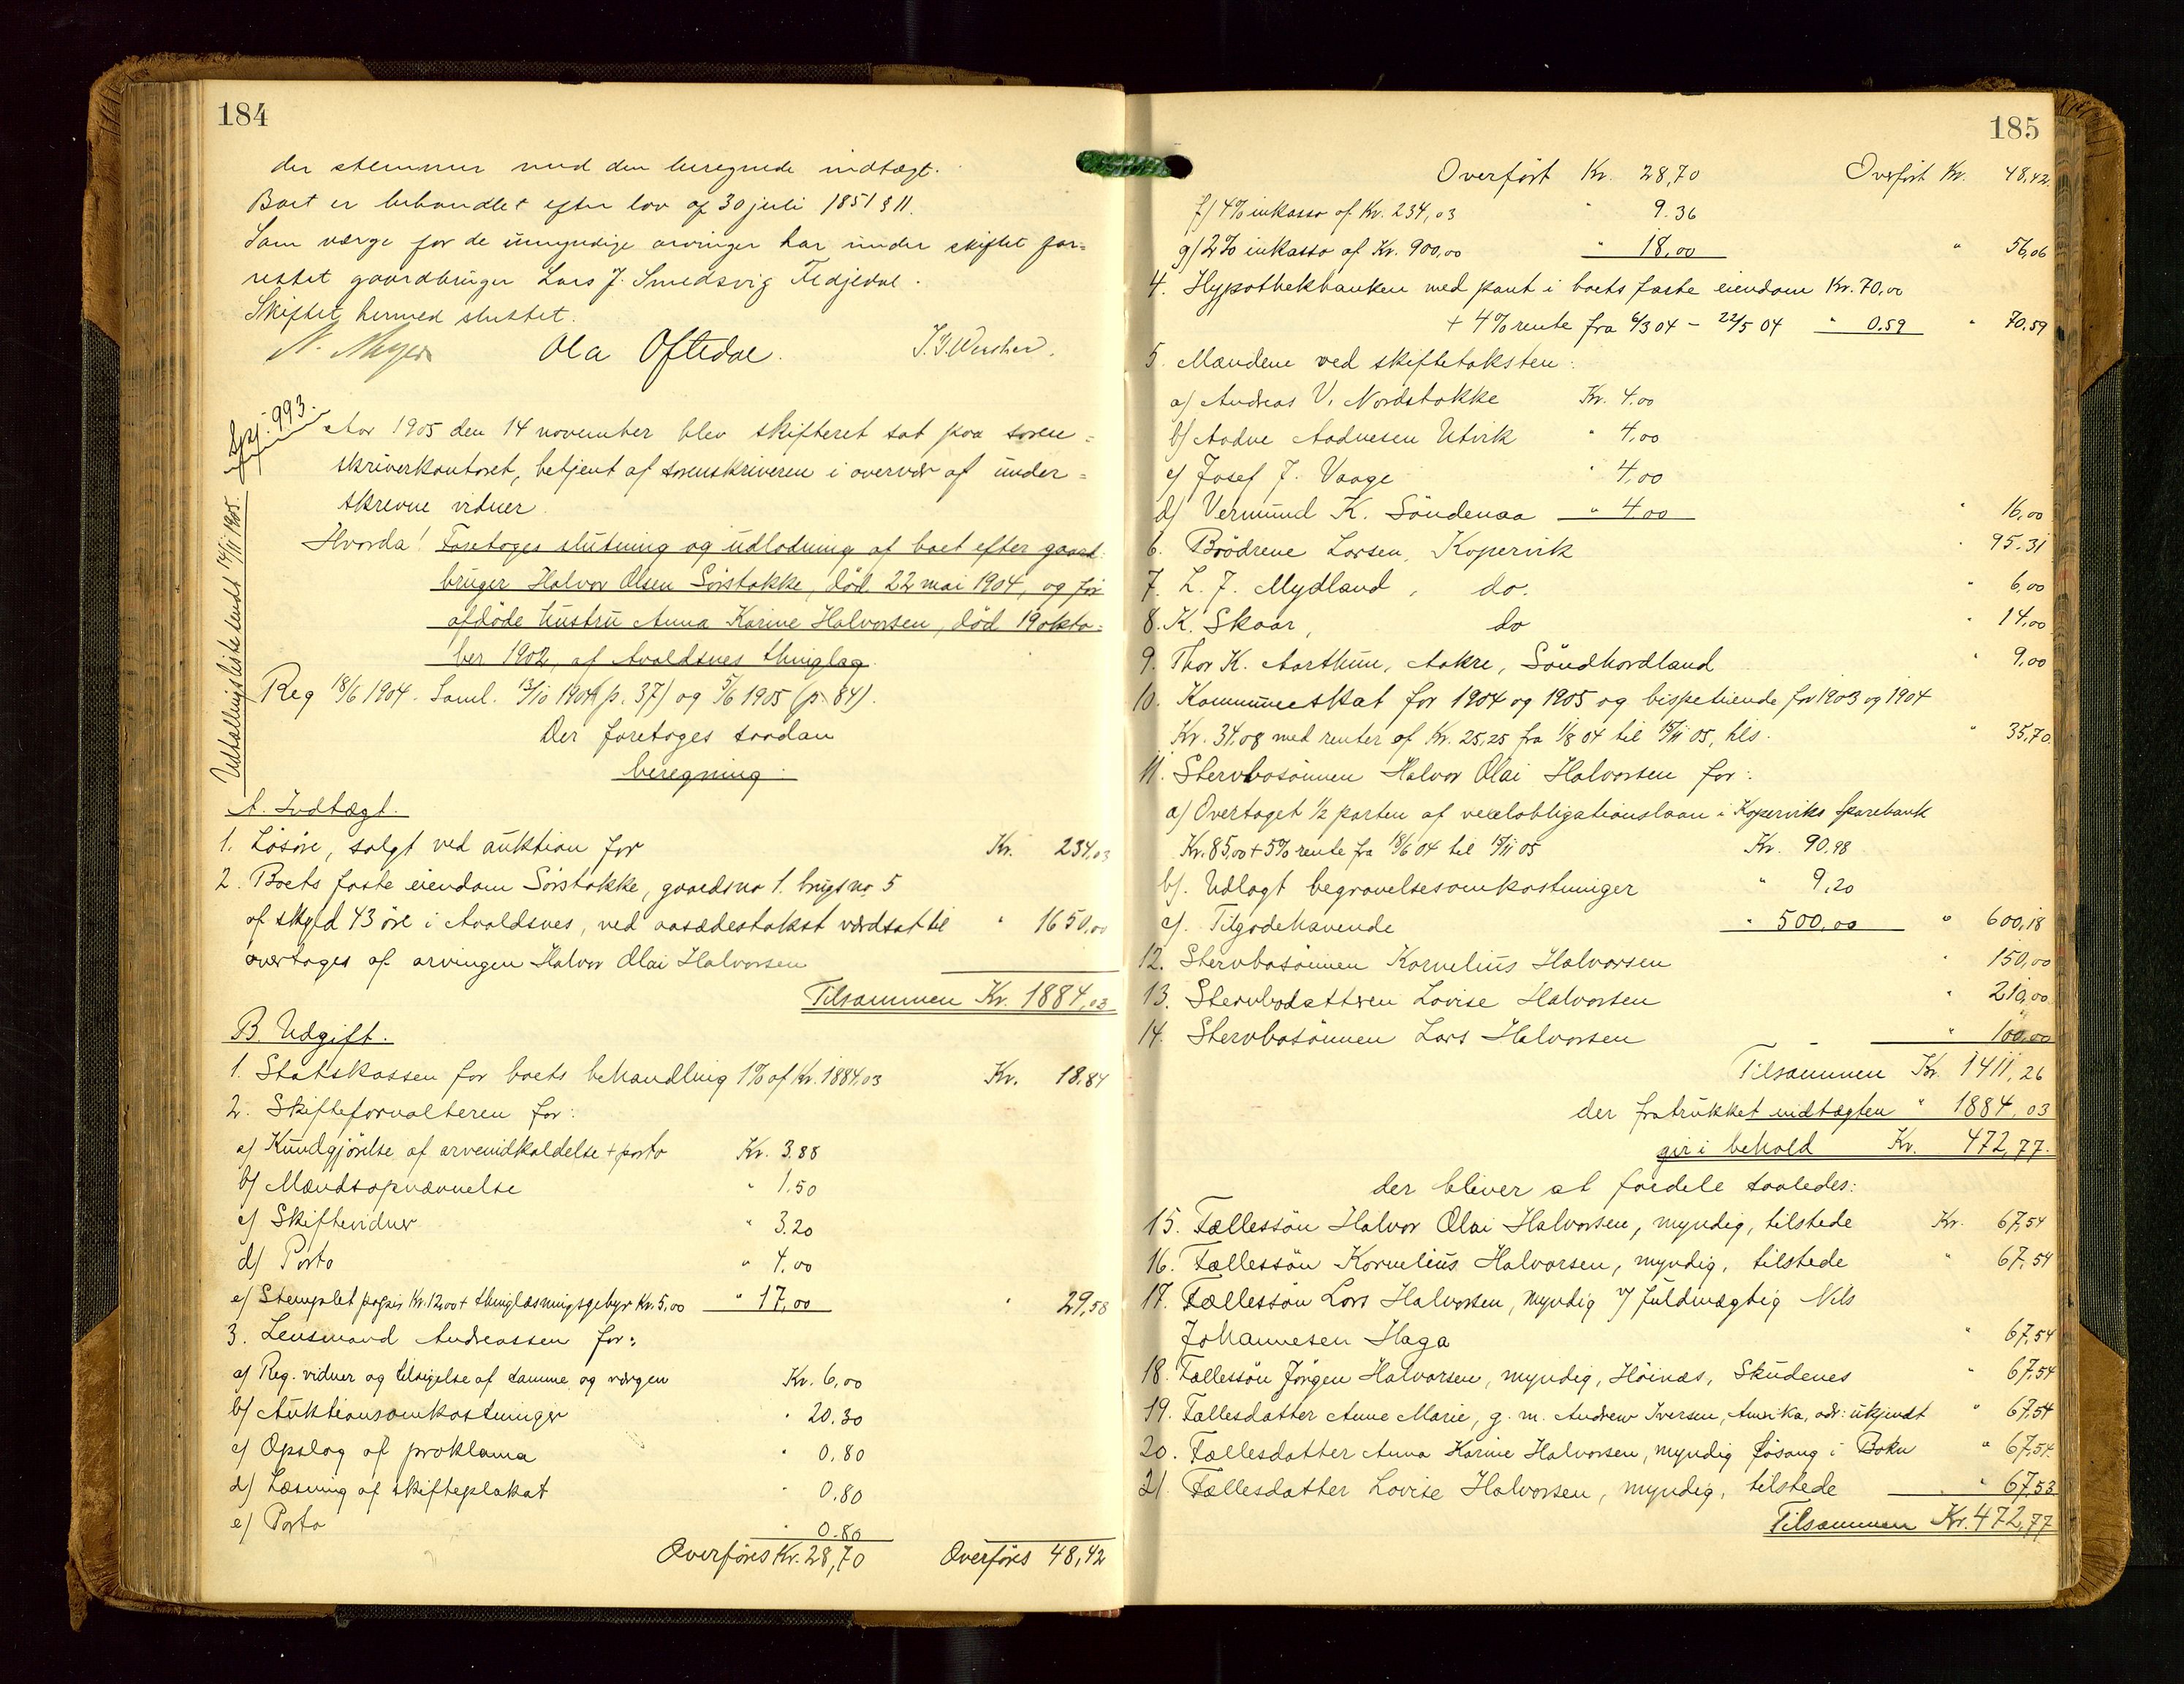 184
der stemmer med den beregnede indtægt.
Boet er behandlet efter lov af 30 juli 1851 § 11.
Som værge for de umyndige arvinger har under skiftet fore=
rettet gaardbruger Lars J. Smedsvig Fedjedal.
Skiftet hermed sluttet.
N. Meyer Ola Oftedal.
Lpg. 993.
Udtællingsliste sendt 14/11 1905.
Aar 1905 den 14 november blev skifteret sat paa soren=
skriverkontoret, betjent af sorenskriveren i overvær af under=
skrevne vidner
Hvorda! Foretoges slutning og udlodning af boet efter gaard
bruger Halvor Olsen Sörstokke, död 22 mai 1904, og för
afdöde hustru Anna Karine Halvorsen, död 19 okto=
ber 1902, af Avaldsnes thinglag.
Reg 18/6 1904. Saml. 13/10 1904 (p. 37) og 5/6 1905 (p. 84).
Der foretoges saadan
beregning:
A. Indtægt.
1. Lösöre, solgt ved auktion for Kr. 234,03
2. Boets faste eiendom Sörstokke, gaardsno 1. brugsno. 5
af skyld 43 öre i Avaldsnes, ved aasædestakst værdsat til " 1650,00
overtages af arvingen Halvor Olai Halvorsen
Tilsammen Kr. 1884,03
B. Udgift.
1. Statskassen for boets behandling 1% af Kr. 1884,03 Kr. 18,84
2. Skifteforvalteren for:
a) Kundgjörelse af arveindkaldelse + porto Kr. 3.88
b) Mændsopnævnelse " 1.50
c) Skiftevidner " 3.20
d) Porto " 4.00
e) Stemplet papir Kr. 12,00 + thinglæsningsgebyr Kr. 5,00 " 17,00 " 29,58
3. Lensmand Andreassen for:
a) Reg. vidner og tilsigelse af samme og værgen Kr. 6,00
b) Auktionsomkostninger " 20.30
c) Opslag af proklama " 0.80
d) Læsning af skifteplakat " 0.80
e) Porto " 0.80
Overföres Kr. 28,70 Overföres 48,42
185
Overfört Kr. 28,70 Overfört Kr. 48,42.
f) 4% inkasso af Kr. 234,03 " 9.36
g) 2% inkasso af Kr. 900,00 " 18,00 " 56,06
4. Hypothekbanken med pant i boets faste eiendom Kr. 70,00
+ 4% rente fra 6/3 04 - 22/5 04 " 0.59 " 70.59
5. Mændene ved skiftetaksten:
a) Andreas V. Nordstokke Kr. 4.00
b) Aadne Aadnesen Utvik " 4,00
c) Josef J. Vaage " 4,00
d) Vermund K. Söndenaa " 4.00 " 16,00
6. Brödrene Larsen, Kopervik " 95.31
7. L. J. Mydland, do. " 6,00
8. K. Skaar, do " 14,00
9. Thor K. Aarthun, Aakre, Söndhordland " 9,00
10. Kommuneskat for 1904 og 1905 og bispetiende for 1903 og 1904
Kr. 34.08 med renter af Kr. 25,25 fra 1/8 04 til 15/11 05, tils. " 35,70
11. Stervbosönnen Halvor Olai Halvorsen for:
a) Overtaget 1/2 parten af vexelobligationslaan i Koperviks Sparebank
Kr. 85,00 + 5% rente fra 18/6 04 til 15/11 05 Kr. 90.98
b). Udlagt begravelsesomkostninger " 9,20
c). Tilgodehavende " 500,00 " 600,18
12. Stervbosönnen Kornelius Halvorsen " 150,00
13. Stervbodatteren Lovise Halvorsen " 210,00
14. Stervbosönnen Lars Halvorsen " 100,00
Tilsammen Kr. 1411,26
der fratrukket indtægten " 1884,03
gir i behold Kr. 472,77.
der bliver at fordele saaledes:
15. Fællessön Halvor Olai Halvorsen, myndig, tilstede Kr. 67,54
16. Fællessön Kornelius Halvorsen, myndig, tilstede " 67,54
17. Fællessön Lars Halvorsen, myndig v/ fuldmægtig Nils
Johannesen Haga " 67,54
18. Fællessön Jörgen Halvorsen, myndig, Höinæs, Skudenes " 67,54
19. Fællesdatter Anne Marie, g. m. Andrew Iversen, Amerika, adr: ukjendt " 67,54
20. Fællesdatter Anna Karine Halvorsen, myndig Fösang i Bokn " 67,54.
21. Fællesdatter Lovise Halvorsen, myndig, tilstede " 67,53
Tilsammen Kr. 472,77